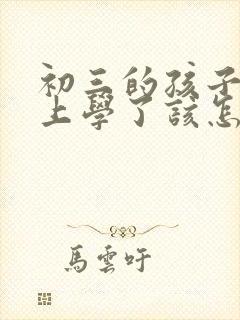 初三的孩子
上學了該怎
馬雲吁